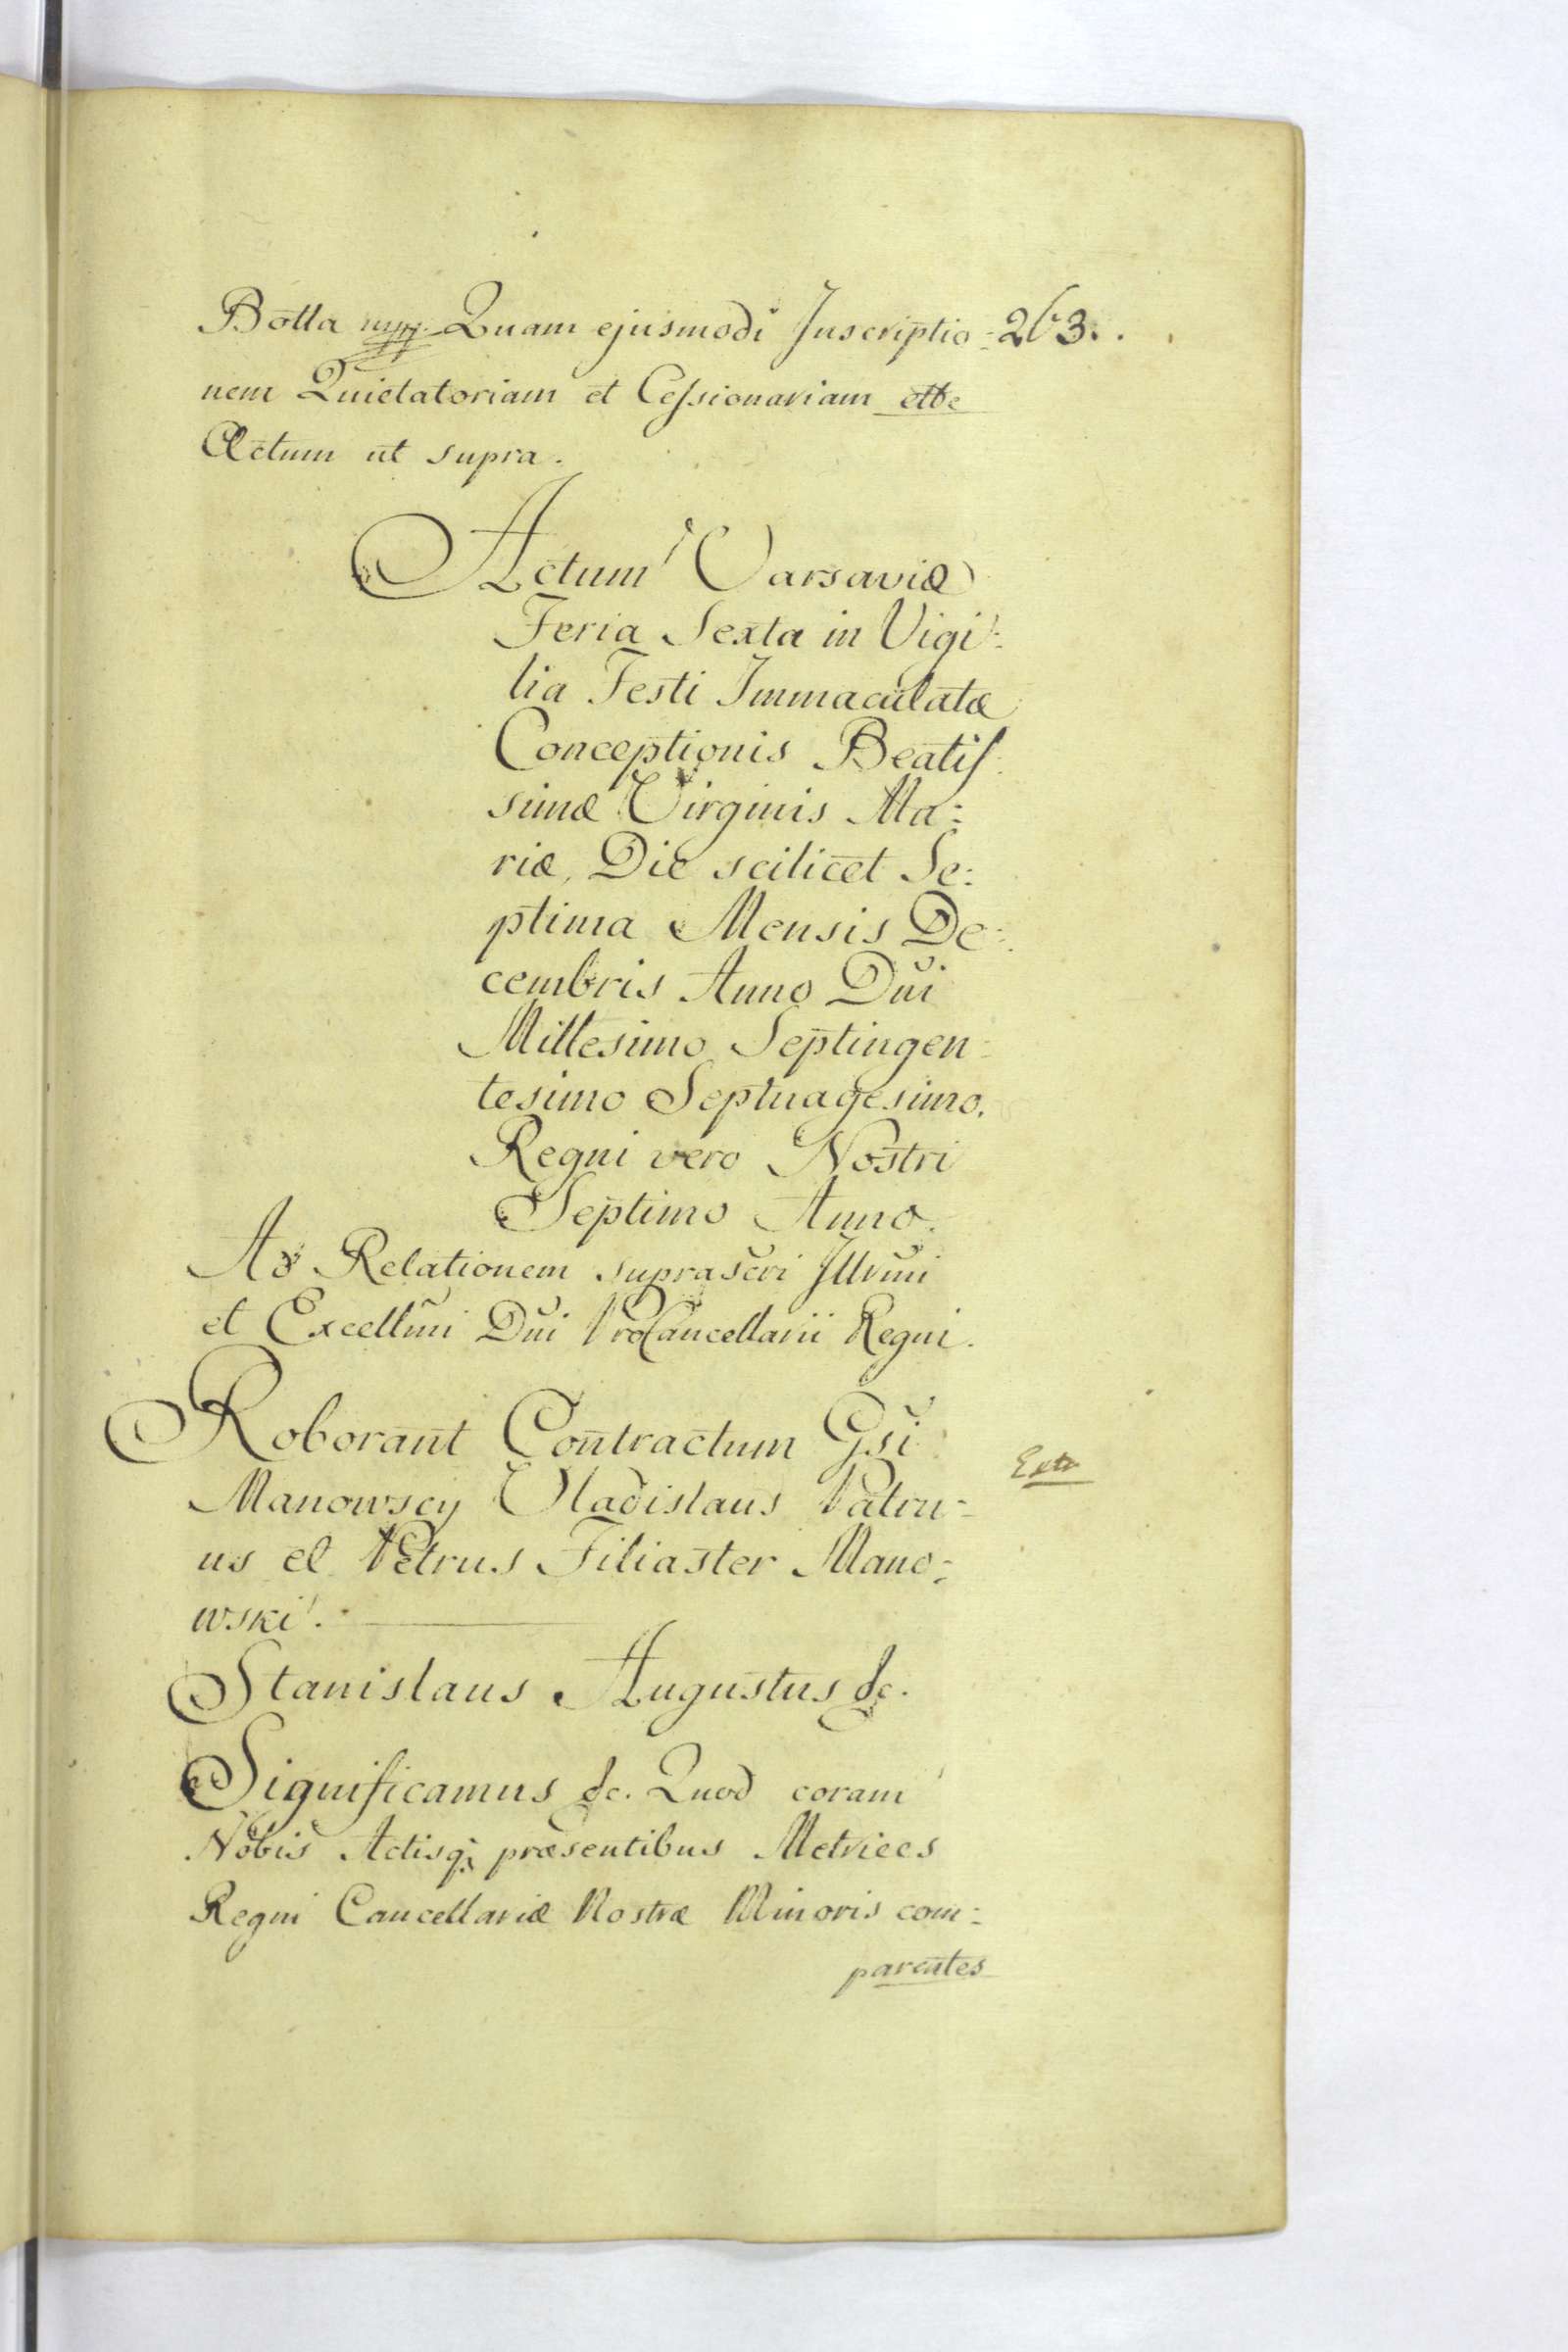 Botta mpp. Quam ejusmodi Inscriptio- 263.
nem Quietatoriam et Cessionariam ettc
Actum ut supra.
Actum Varsaviæ
Feria Sexta in Vigi-
lia Festi Immaculatæ
Conceptionis Beatis-
simæ Virginis Ma-
riæ, Die scilicet Se-
ptima Mensis De-
cembris Anno Dni
Millesimo Septingen-
tesimo Septuagesimo.
Regni vero Nostri
Septimo Anno.
Ad Relationem suprascri Illrmi
et Excellmi Dni ProCancellarii Regni.
Roborant Contractum Gsi
Manowscy Vladislaus Patru-
us et Petrus Filiaster Mano-
wski.
Extr
Stanislaus Augustus &c.
Significamus &c. Quod coram
Nobis Actisq; præsentibus Metrices
Regni Cancellariæ Nostræ Minoris com-
parentes